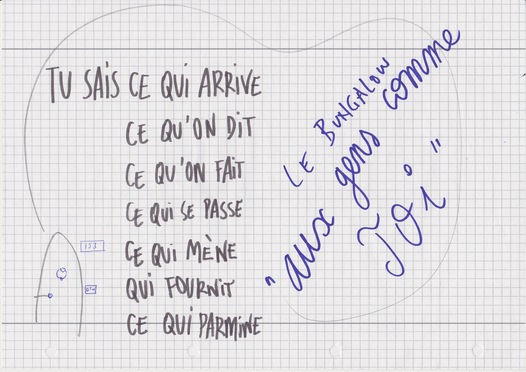 TU SAIS CE QUI ARRIVE
CE QU'ON DIT
CE QU'ON FAIT
CE QUI SE PASSE
CE QUI MÈNE
QUI FOURNIT
CE QUI PARMINE
LE BUNGALOW
"aux gens comme
TOi"